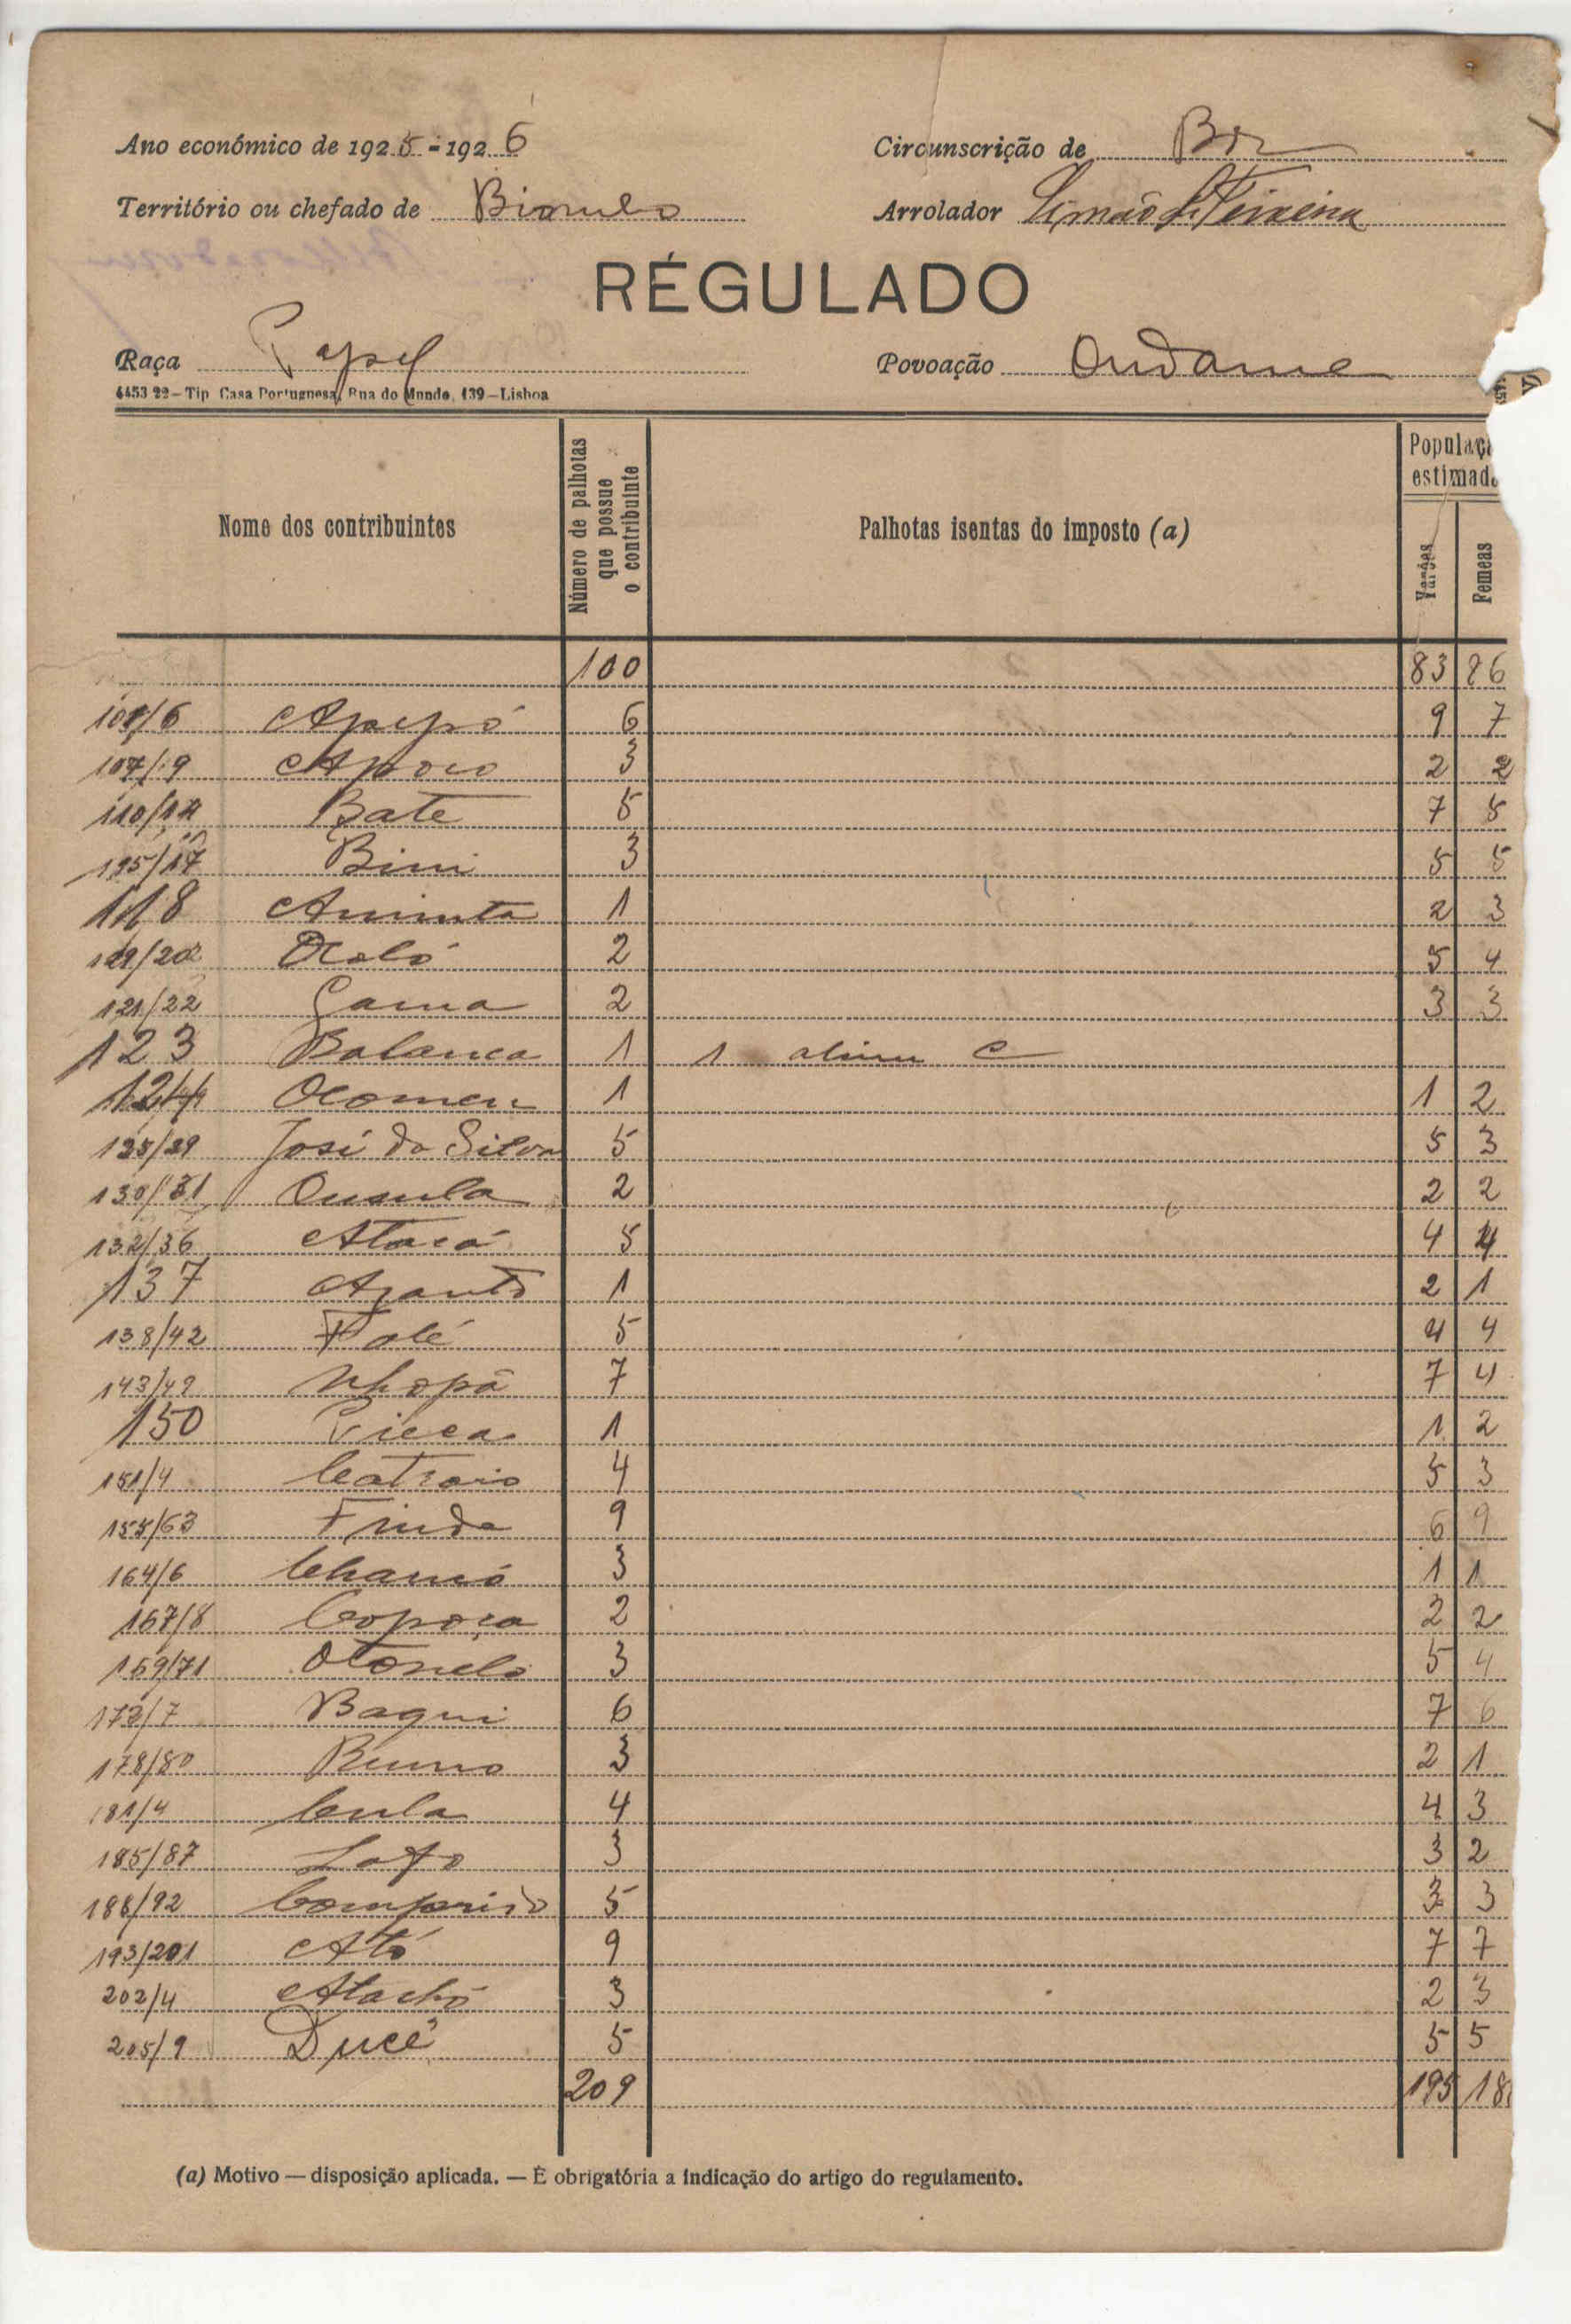 Ano económico de 1925-1926
Circunscrição de Bor
Território ou chefado de Biombo
Arrolador Simão Teixeira
RÉGULADO
Raça Papel
Povoação Ondame
4453 22—Tip Casa Portuguesa, Rua do Mundo, 139—Lisboa
Nome dos contribuintes
Número de palhotas que possue o contribuinte
Palhotas isentas do imposto (a)
Populaç
estimada
Varões
Femeas
100 83 86
101/6 Apepó 6 9 7
107/9 Apoio 3 2 2
110/14 Bate 5 7 5
115/17 Bini 3 5 5
118 Animta 1 2 3
119/20 Ocoló 2 5 4
121/22 Gama 2 3 3
123 Balanca 1 1 c
124 Ocomen 1 1 2
125/29 José da Silva 5 5 3
130/31 Onsula 2 2 2
132/36 Atacá 5 4 4
137 Azanto 1 2 1
138/42 Falé 5 4 4
143/49 Nhopá 7 7 4
150 Vieca 1 1 2
151/4 Catraio 4 5 3
155/63 Finda 9 6 9
164/6 Chamó 3 1 1
167/8 Copoça 2 2 2
169/71 Otonelo 3 5 4
172/7 Baqui 6 7 6
178/80 Bumo 3 2 1
181/4 Cula 4 4 3
185/87 Lafo 3 3 2
188/92 Comprido 5 3 3
193/201 Ató 9 7 7
202/4 Atachó 3 2 3
205/9 Ducé 5 5 5
209 195 18
(a) Motivo — disposição aplicada. — É obrigatória a indicação do artigo do regulamento.